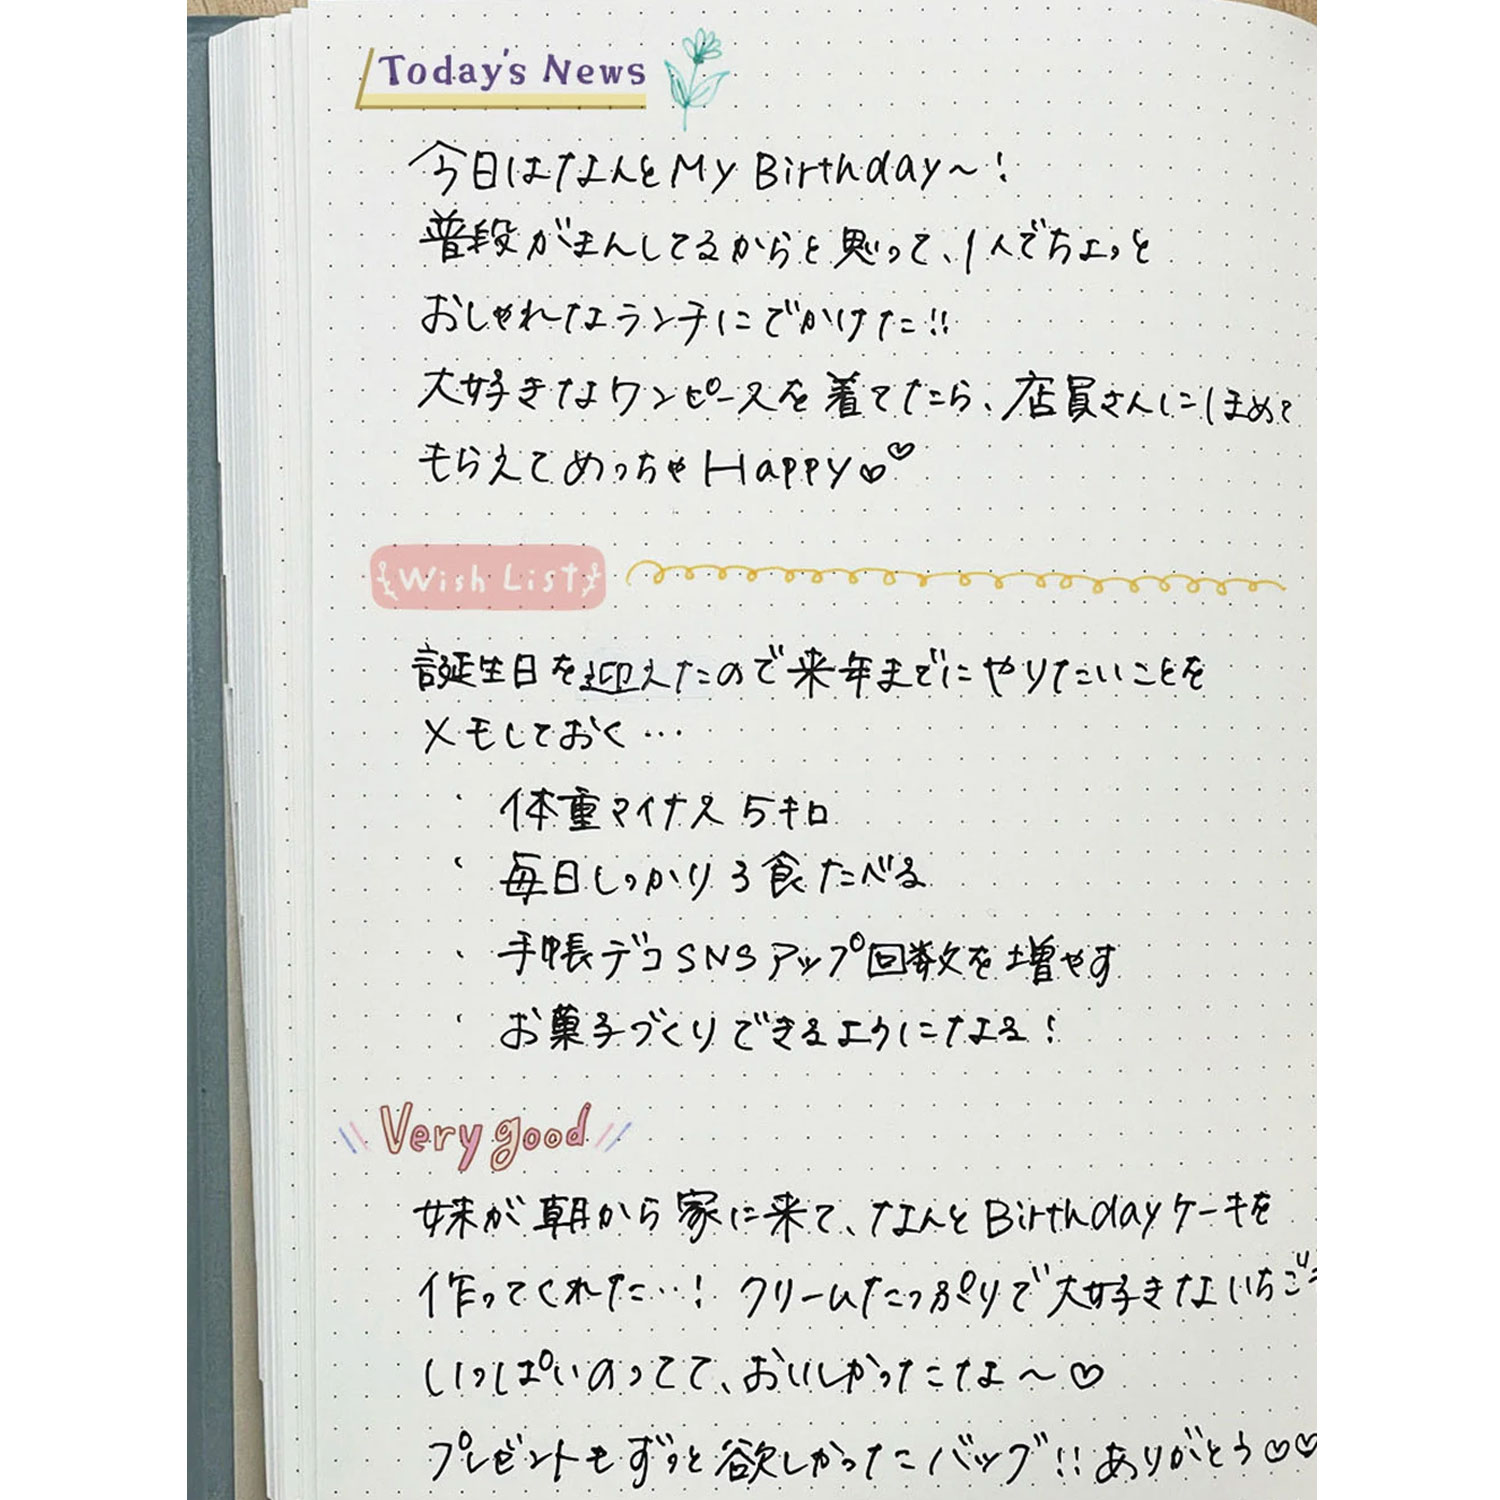 Today's News
今日はなんとMy Birthday〜!
普段がまんしてるからと思って、1人でちょっと
おしゃれなランチにでかけた!!
大好きなワンピースを着てたら、店員さんにほめて
もらえてめっちゃHappy♡♡
Wish List
誕生日を迎えたので来年までにやりたいことを
メモしておく…
・体重マイナス5キロ
・毎日しっかり3食たべる
・手帳デコSNSアップ回数を増やす
・お菓子づくりできるようになる!
Very good
妹が朝から家に来て、なんとBirthdayケーキを
作ってくれた…! クリームたっぷりで大好きないちご
いっぱいのってて、おいしかったなぁ〜♡
プレゼントもずっと欲しかったバッグ!!ありがとう♡♡